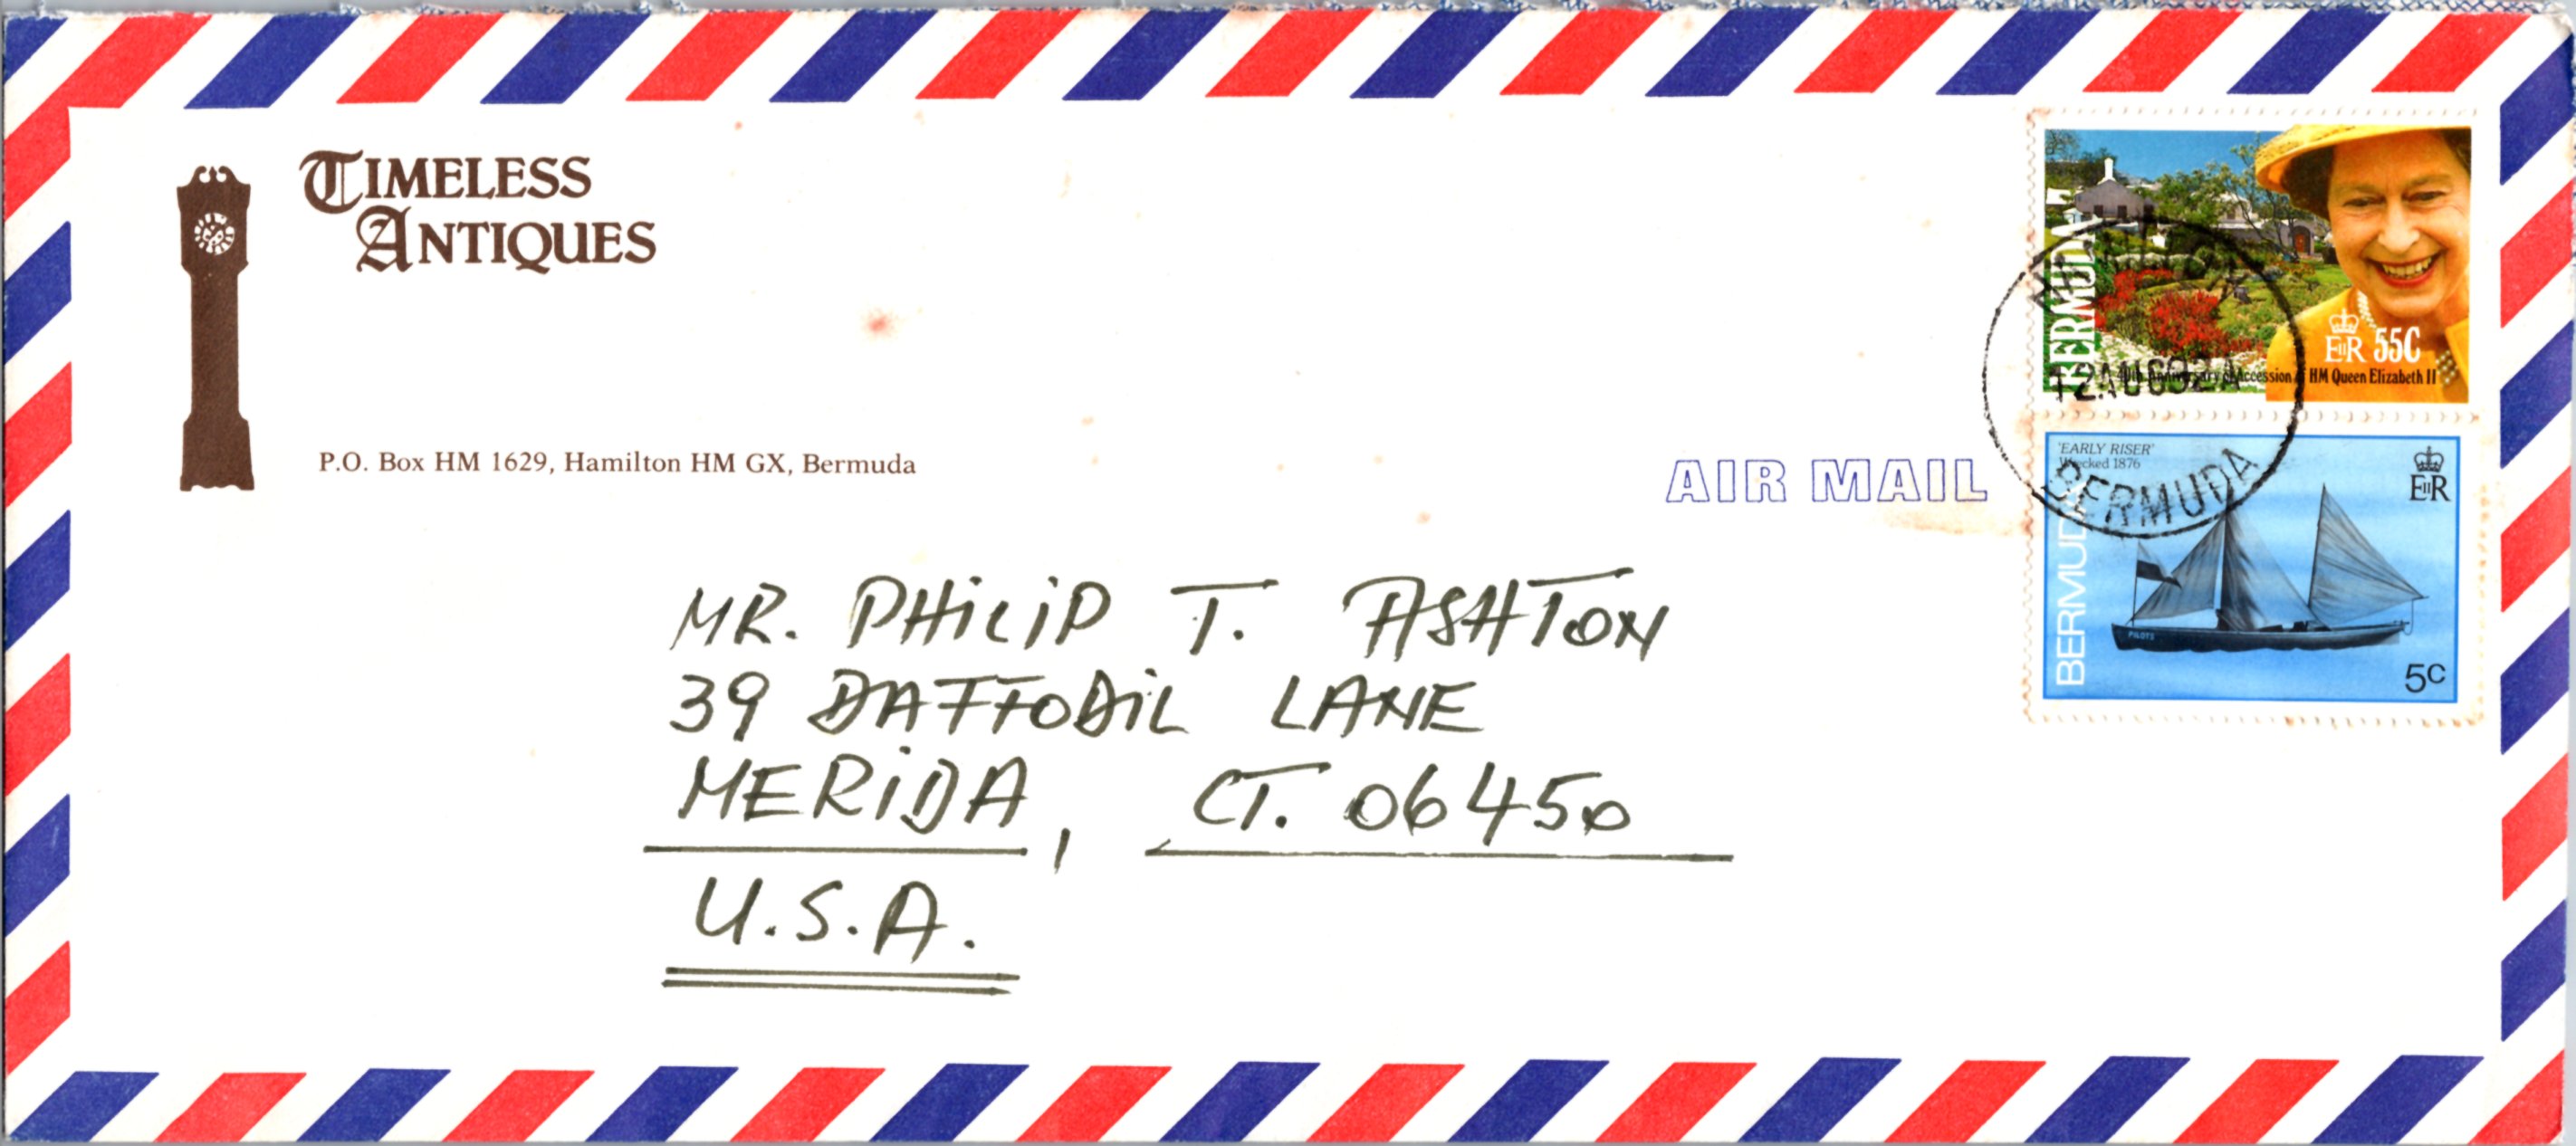 TIMELESS
ANTIQUES
P.O. Box HM 1629, Hamilton HM GX, Bermuda
AIR MAIL
BERMUDA
EIIR 55C
40th Anniversary of Accession of HM Queen Elizabeth II
12 AUG 92
BERMUDA
'EARLY RISER'
Wrecked 1876
EIIR
BERMUDA
PILOTS
5c
MR. PHILIP T. ASHTON
39 DAFFODIL LANE
MERIDA, CT. 06450
U.S.A.